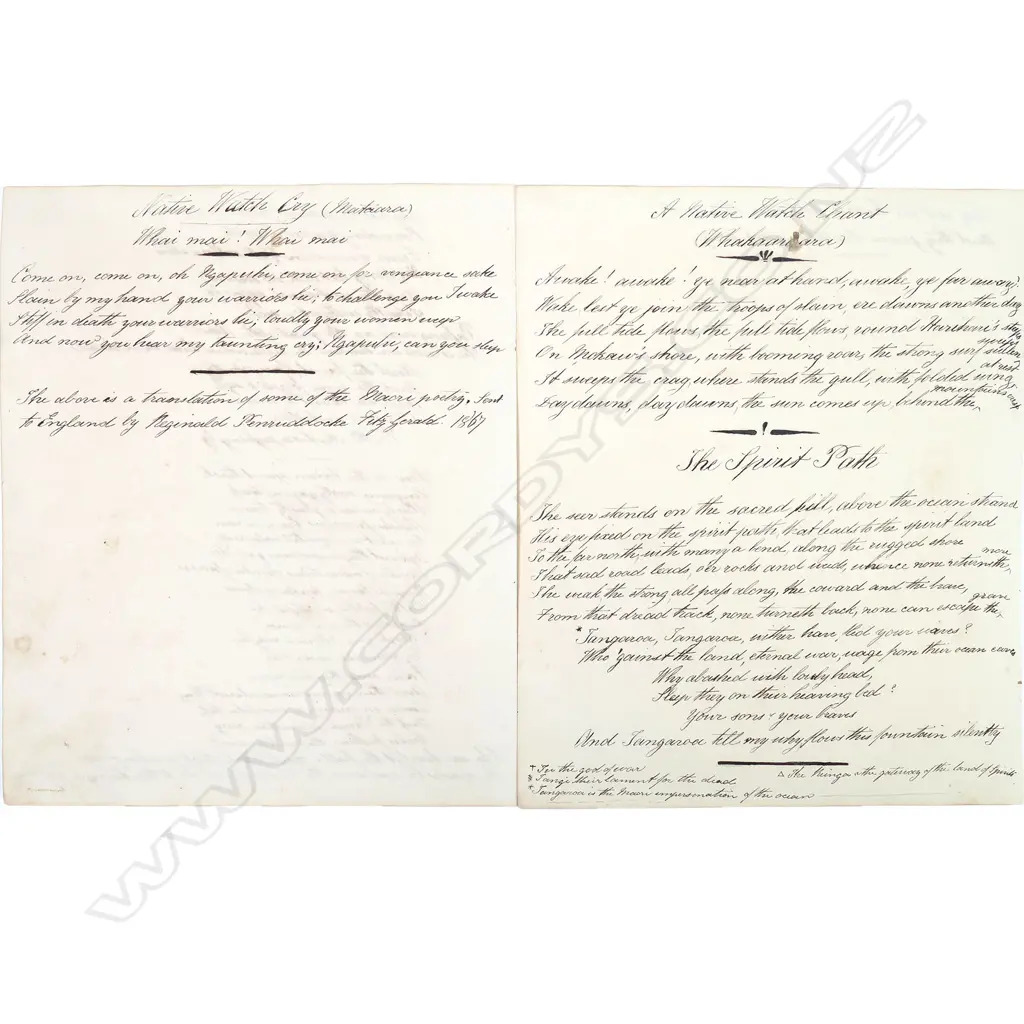 Native Watch Cry (Mataara)
Whai mai! Whai mai
Come on, come on, oh Ngapuhi, come on for vengeance sake
Slain by my hand your warriors lie; to challenge you I wake
Stiff in death your warriors lie; loudly your women weep
And now you hear my taunting cry; Ngapuhi, can you sleep
The above is a translation of some of the Maori poetry. Sent
to England by Reginald Penruddocke Fitz Gerald. 1867
A Native Watch Chant
(Whakaaraara)
Awake! awake! ye near at hand; awake, ye far away!
Wake lest ye join the troops of slain, ere dawns another day
The full tide flows, the full tide flows, round Harihari's
On Mokau's shore, with booming roar, the strong surf
It sweeps the crag, where stands the gull, with folded wing at rest
Day dawns, day dawns, the sun comes up, behind the mountains
The Spirit Path
The seer stands on the sacred hill, above the ocean strand
His eye fixed on the spirit path, that leads to the spirit land
To the far north, with many a bend, along the rugged shore
That sad road leads, o'er rocks and weeds, whence none returneth more
The weak the strong all pass along, the coward and the brave,
From that dread track, none turneth back, none can escape the grave
* Tangaroa, Tangaroa, wither han, tied your waves?
Who 'gainst the land, eternal war, wage from their ocean caves
Why abashed with lowly head,
Sleep they on their heaving bed?
Your sons & your braves
And Tangaroa tell my why flows this fountain silently
the god of war
Tangi their lament for the dead
* Tangaroa is the Maori impersonation of the ocean
The Reinga is the gateway of the land of spirits
WWW.CORDYS.CO.NZ